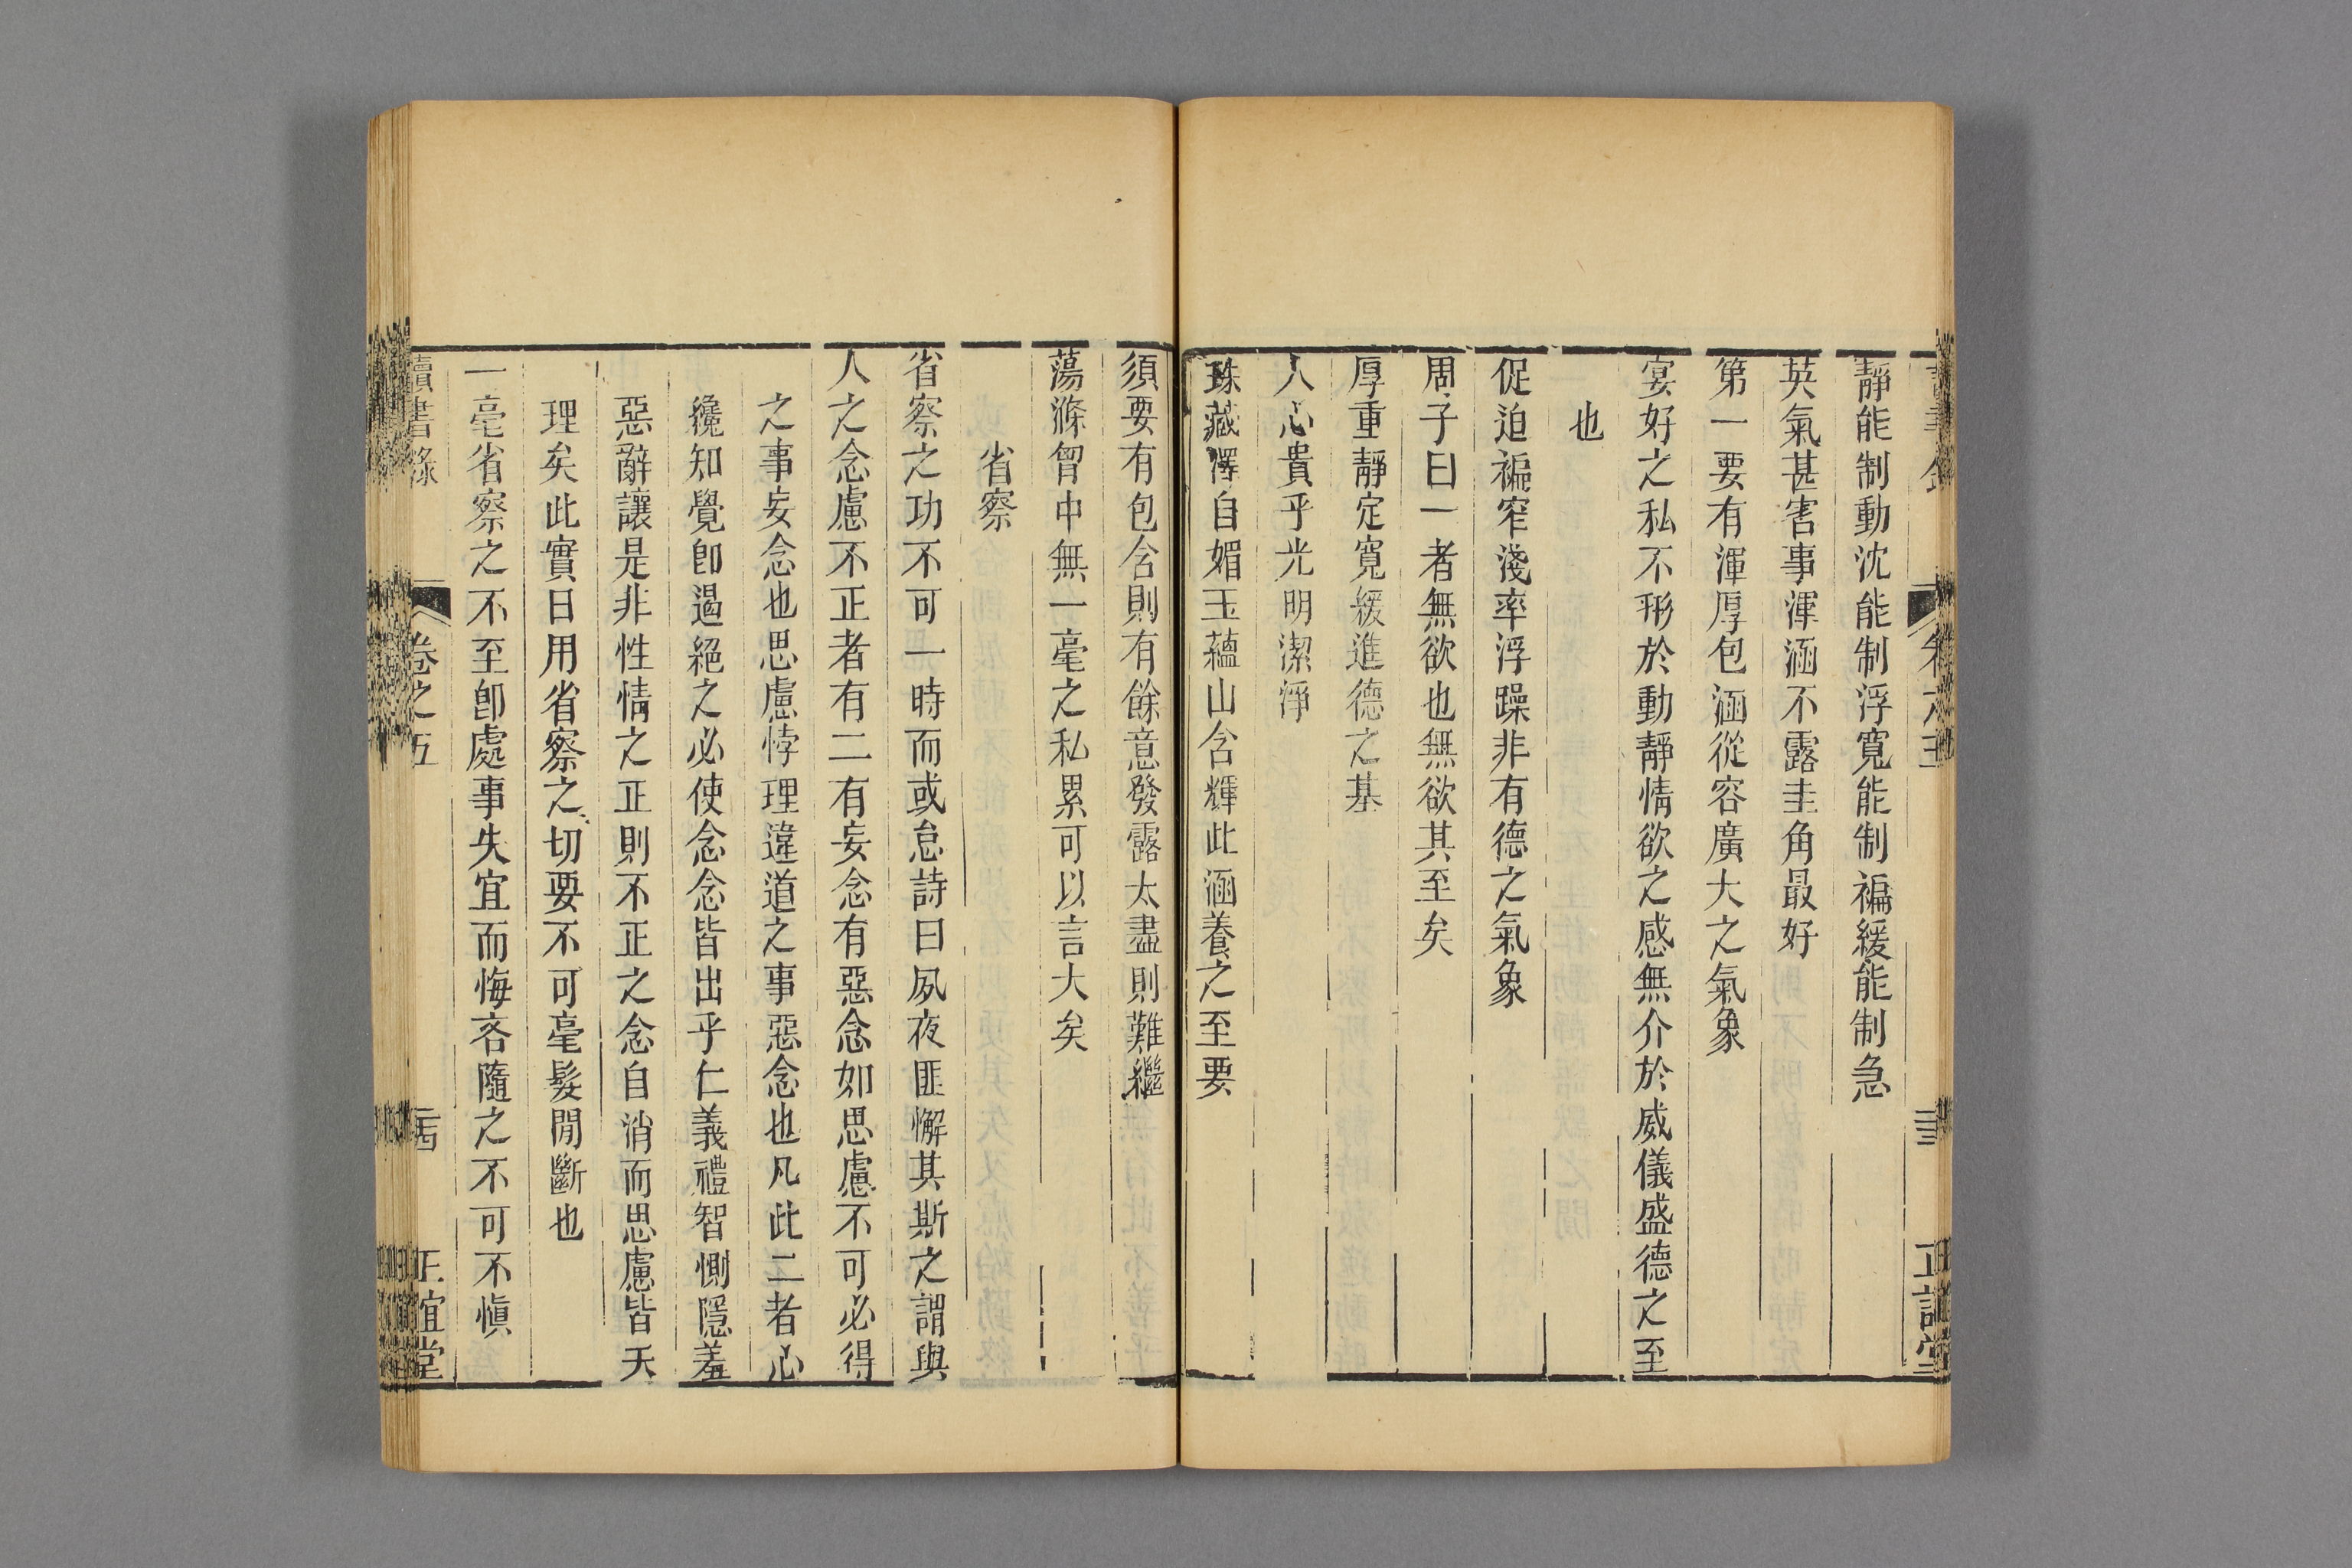 靜能制動沈能制浮寬能制褊緩能制急
英氣甚害事渾涵不露圭角最好
第一要有渾厚包涵從容廣大之氣象
宴好之私不形於動靜情欲之感無介於威儀盛德之至
也
促迫褊窄淺率浮躁非有德之氣象
周子曰一者無欲也無欲其至矣
厚重靜定寬緩進德之基
人心貴乎光明潔淨
珠藏澤自媚玉蘊山含輝此涵養之至要
須要有包含則有餘意發露太盡則難繼
蕩滌曾中無一毫之私累可以言大矣
省察
省察之功不可一時而或怠詩曰夙夜匪懈其斯之謂與
人之念慮不正者有二有妄念有惡念如思慮不可必得
之事妄念也思慮悖理違道之事惡念也凡此二者心
纔知覺卽遏絕之必使念念皆出乎仁義禮智惻隱羞
惡辭讓是非性情之正則不正之念自消而思慮皆天
理矣此實日用省察之切要不可毫髮閒斷也
一毫省察之不至卽處事失宜而悔吝隨之不可不愼
讀書錄
卷之五
正誼堂